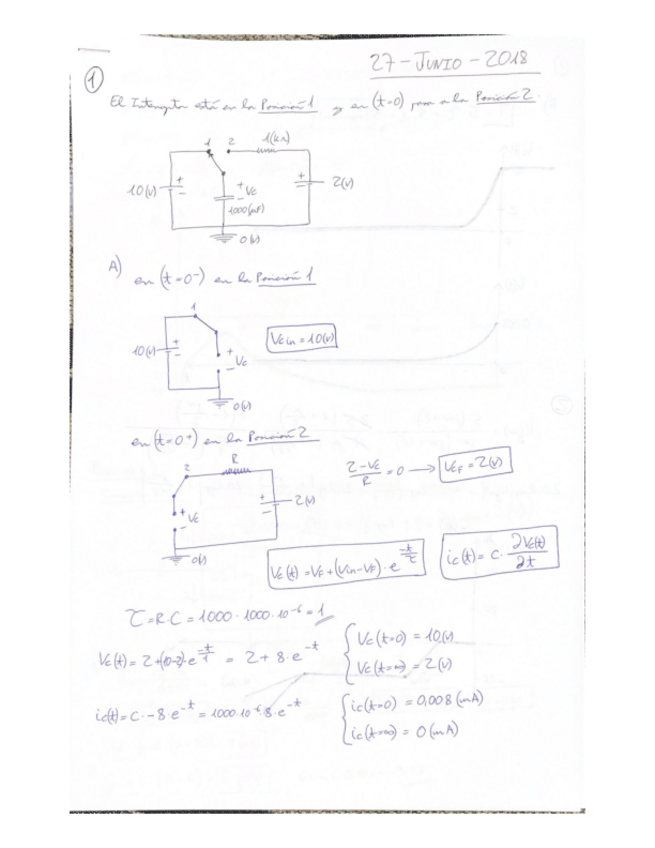 27-JUNIO-2018
1
El Interruptor está en la Posición 1 y en (t=0) pasa a la Posición 2.
1 2 1(kΩ)
10(v) + - + Vc - + - 2(v)
1000(μF)
0(v)
A) en (t=0-) en la Posición 1
1
10(v) + - + Vc - Vcin=10(v)
0(v)
en (t=0+) en la Posición 2
2 R
2-Vc/R=0 → VcF=2(v)
+ Vc - + - 2(v)
0(v)
Vc(t)=VF+(Vin-VF)·e^-t/τ
ic(t)=C·∂Vc(t)/∂t
τ=R·C=1000·1000·10^-6=1
Vc(t)=2+(10-2)·e^-t/1 = 2+8·e^-t
{Vc(t=0)=10(v)
Vc(t=∞)=2(v)
ic(t)=C·-8·e^-t=1000·10^-6·8·e^-t
{ic(t=0)=0,008(mA)
ic(t=∞)=0(mA)